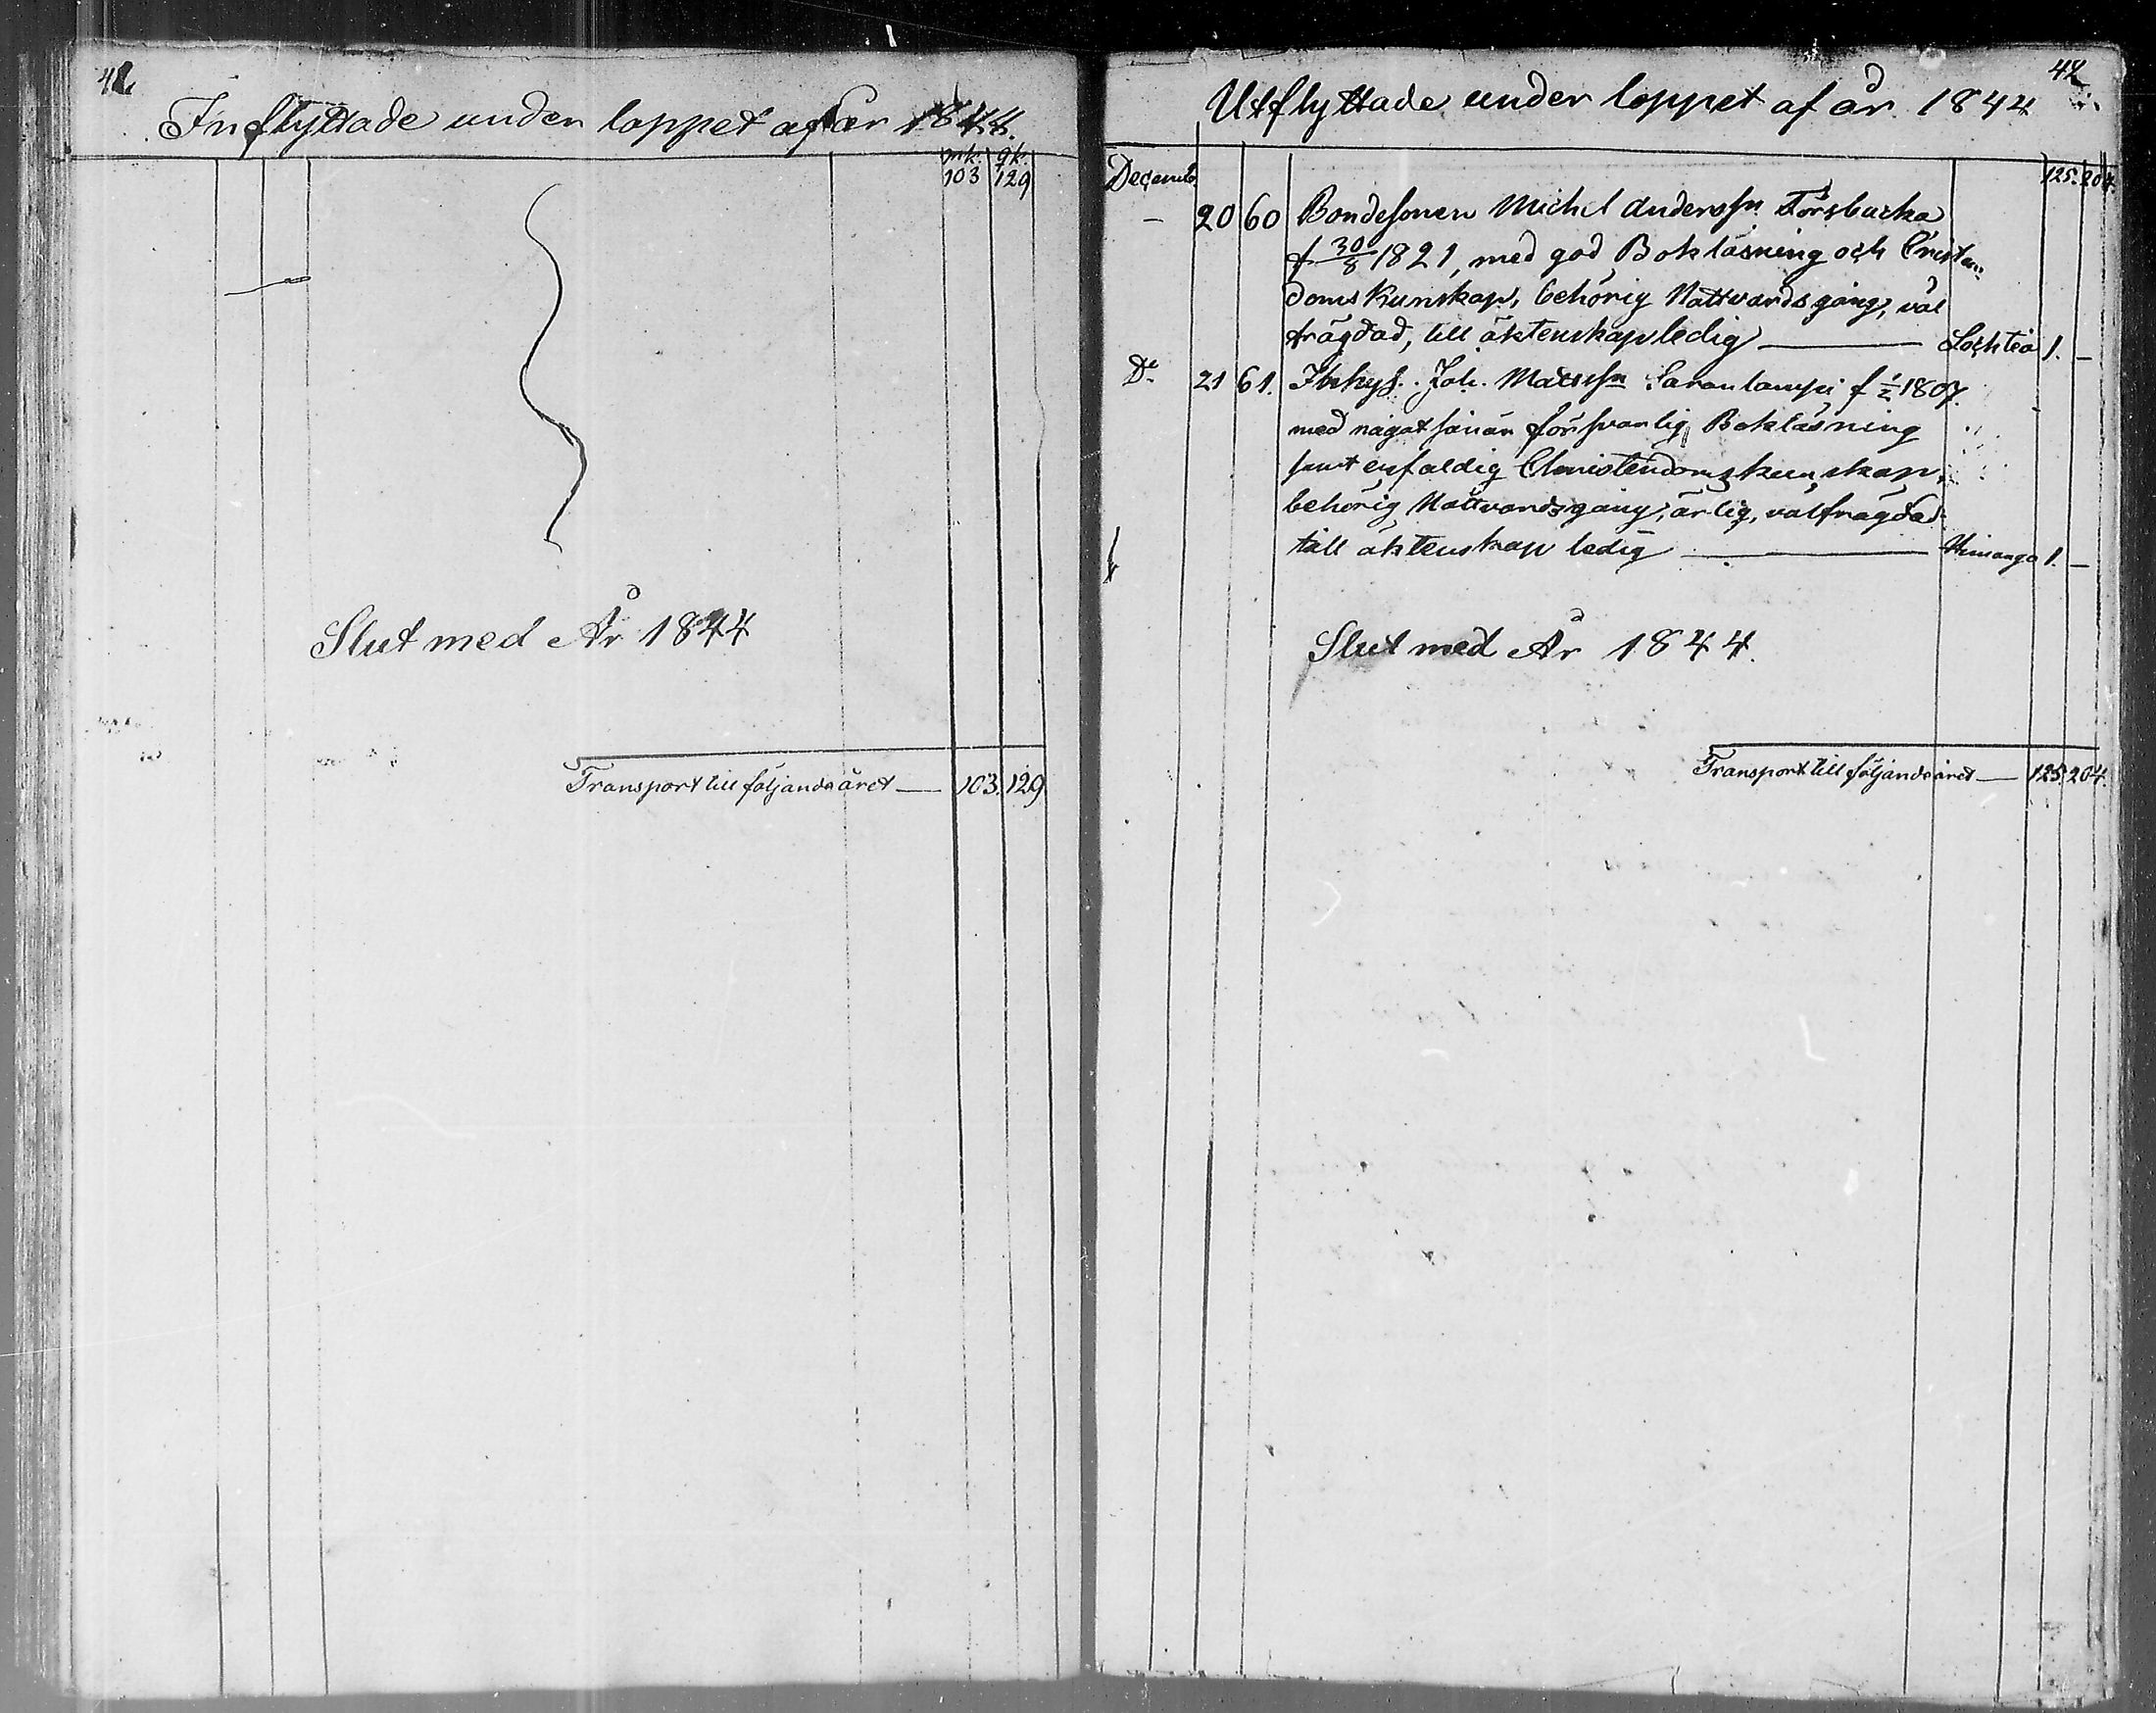 42
Inflyttade under loppet af år 1844.
mk. qk.
103 129
Slut med År 1844
Transport till följande året — 103. 129
42
Utflyttade under loppet af år 1844
Decemb. 125. 204.
— 20 60 Bondesonen Michel Andersßn Forsbacka
f 30/8 1821, med god Bokläsning och Cristen-
doms Kunskap, behörig Nattvardsgång, väl
frägdad, till äktenskap ledig — Lochteå 1. —
Do 21 61. Joh. Matsßn Saranlampi f 1/2 1807.
med något försvarlig Bokläsning
samt enfaldig Christendomskunskap,
behörig Nattvardsgång, ärlig, välfrägdad
till äktenskap ledig — Himango 1. —
Slut med År 1844.
Transport till följande året — 125. 204.